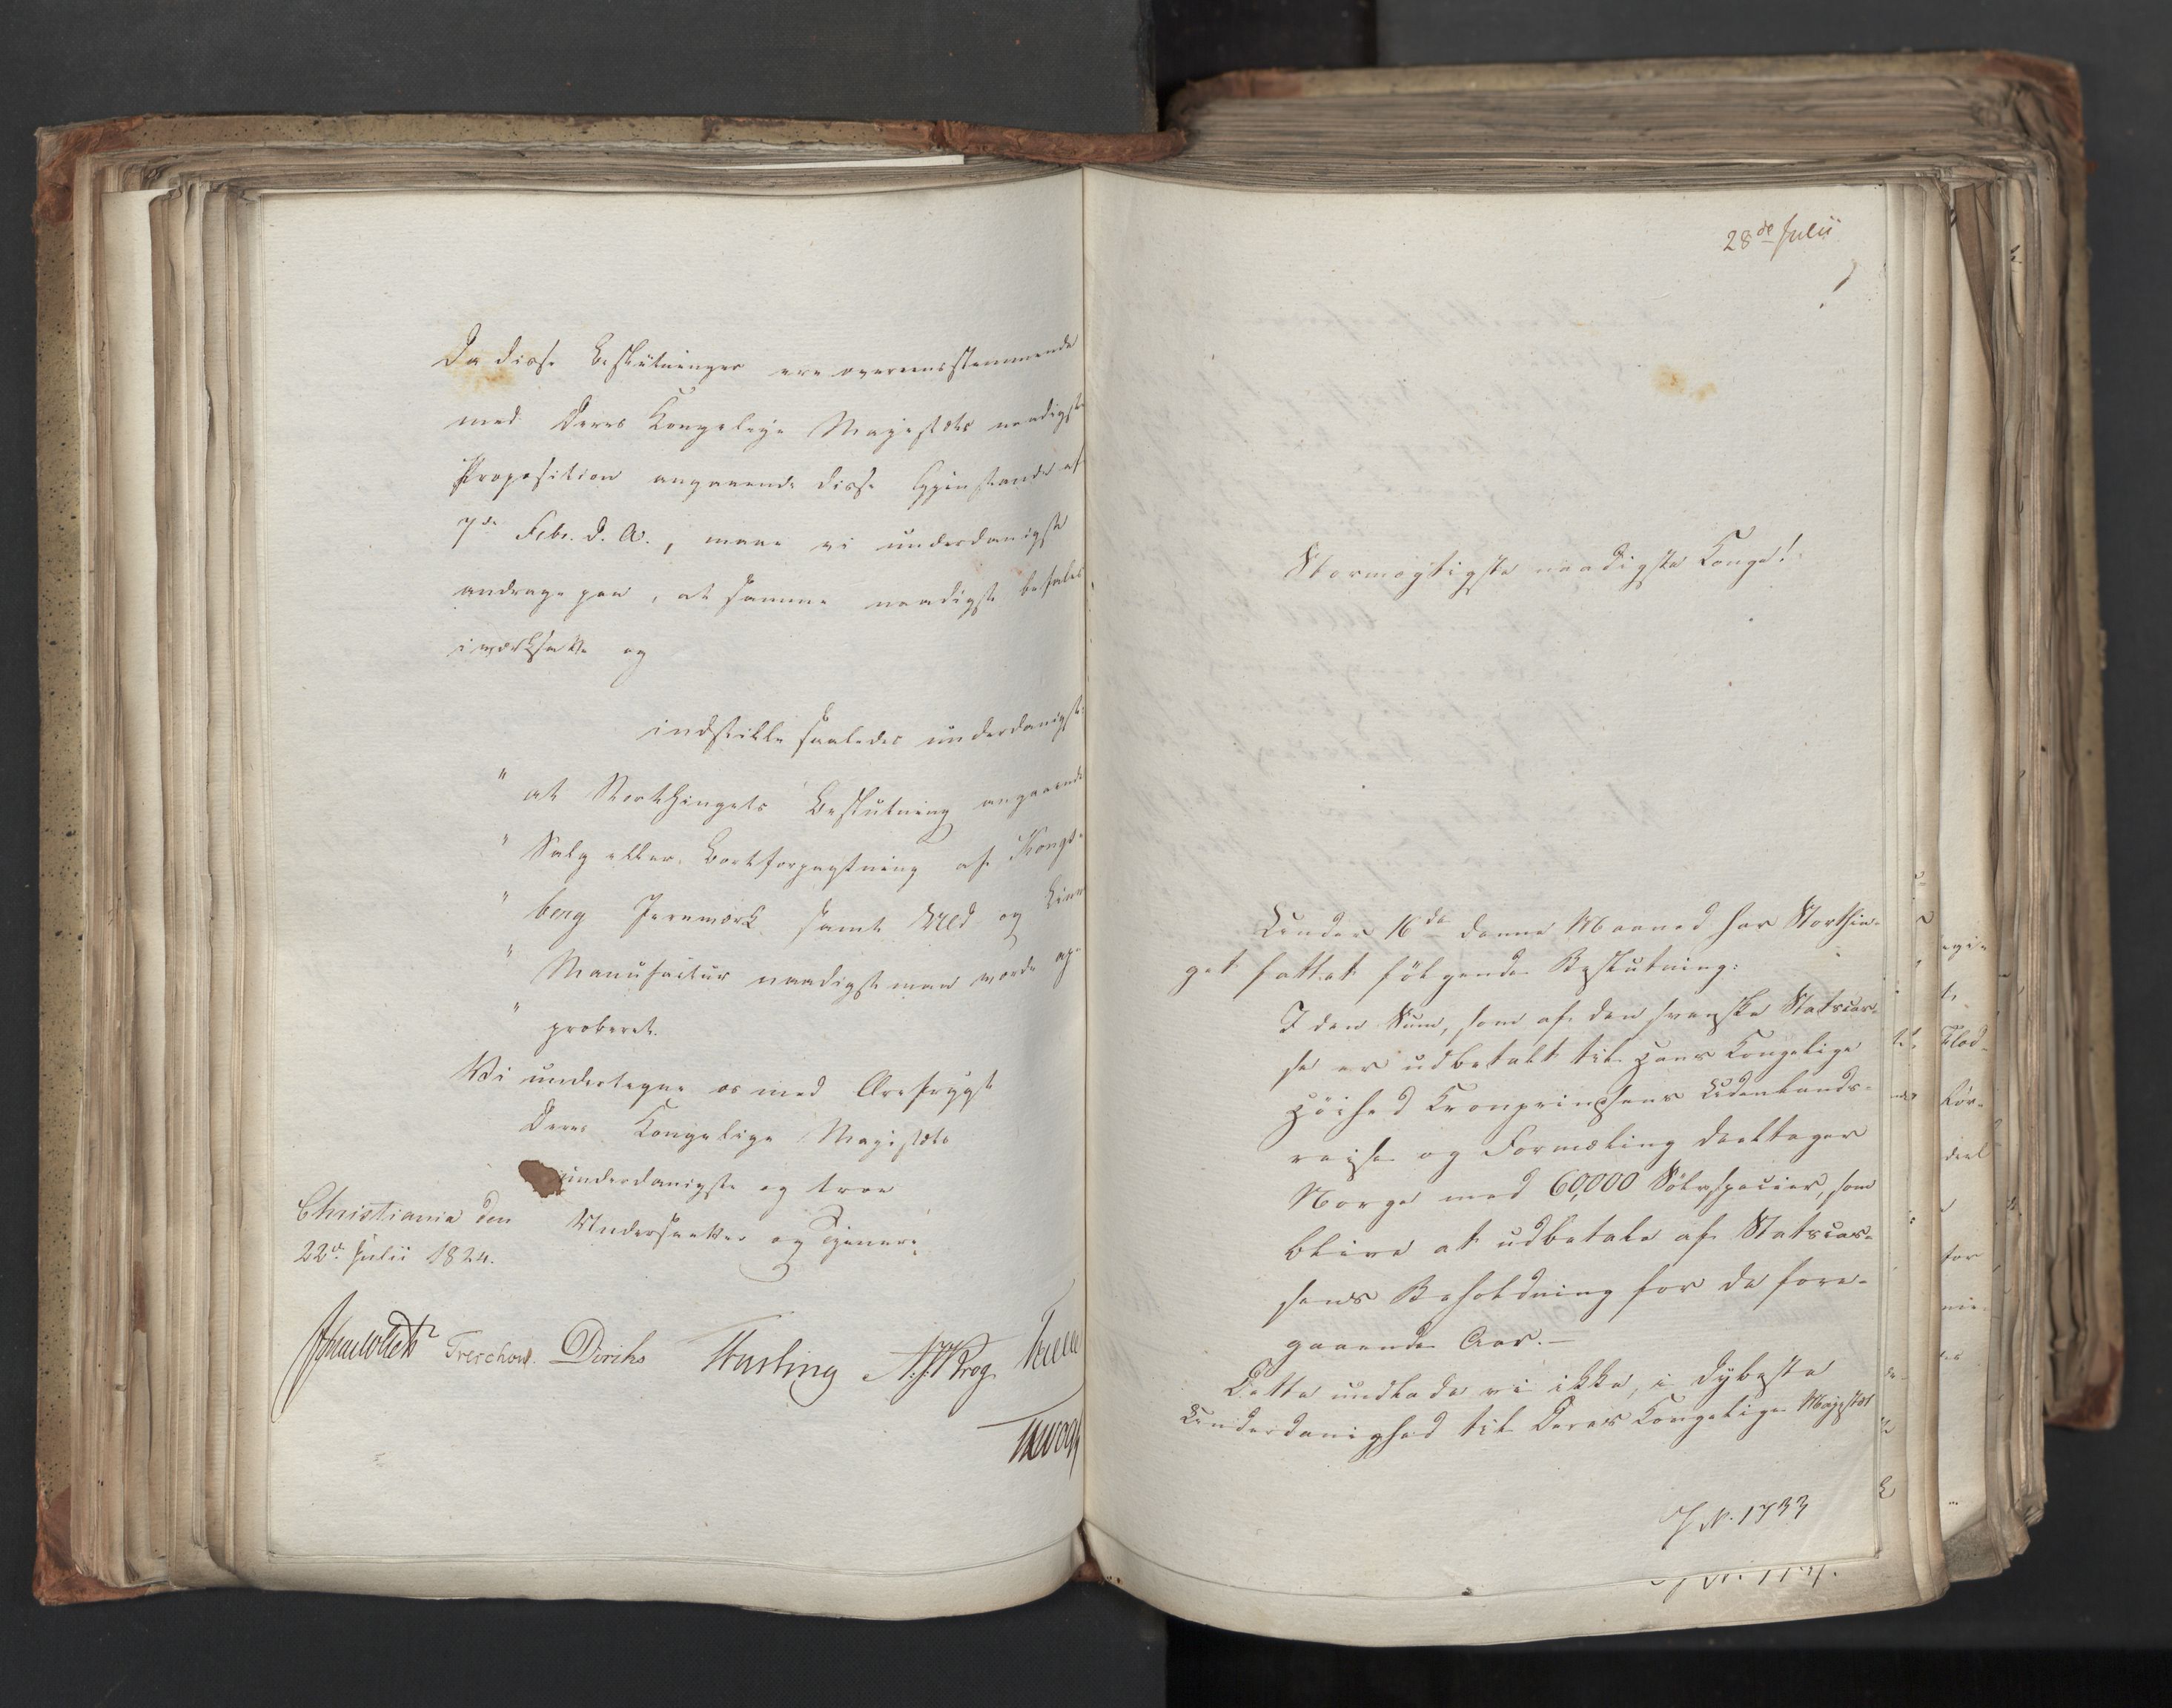 Da disse Beslutninger ere overeensstemmende
med Deres Kongelige Majestæts naadigste
Proposition angaaende disse Gjenstande af
7de Febr. d. A., maae vi underdanigst
andrage paa, at samme naadigst befales
iværksatte og
indstille saaledes underdanigst:
" at Storthingets Beslutning angaaende
" Salg eller Bortforpagtning af Kongs-
" berg Jernværk samt Uld og Linn
" Manufactur naadigst maa vorde ap-
" proberet.
Vi undertegne os med Ærefrygt
Deres Kongelige Majestæts
underdanigste og troe
Christiania den Undersaatter og Tjenere
22de Julii 1824.
Treschow. Diriks Fasting A. J. Krog
28de Julii
Stormægtigste naadigste Konge!
Under 16de denne Maaned har Storthin-
get fattet følgende Beslutning:
I den Sum, som af den svenske Statscas-
se er udbetalt til Hans Kongelige
Höihed Kronprindsens Udenlands-
reise og Formæling deeltager
Norge med 60,000 Sölvspecier, som
blive at udbetale af Statscas-
sens Beholdning for de fore-
gaaende Aar.—
Dette undlade vi ikke, i dybeste
Underdanighed til Deres Kongelige Majestæt
J N. 1733